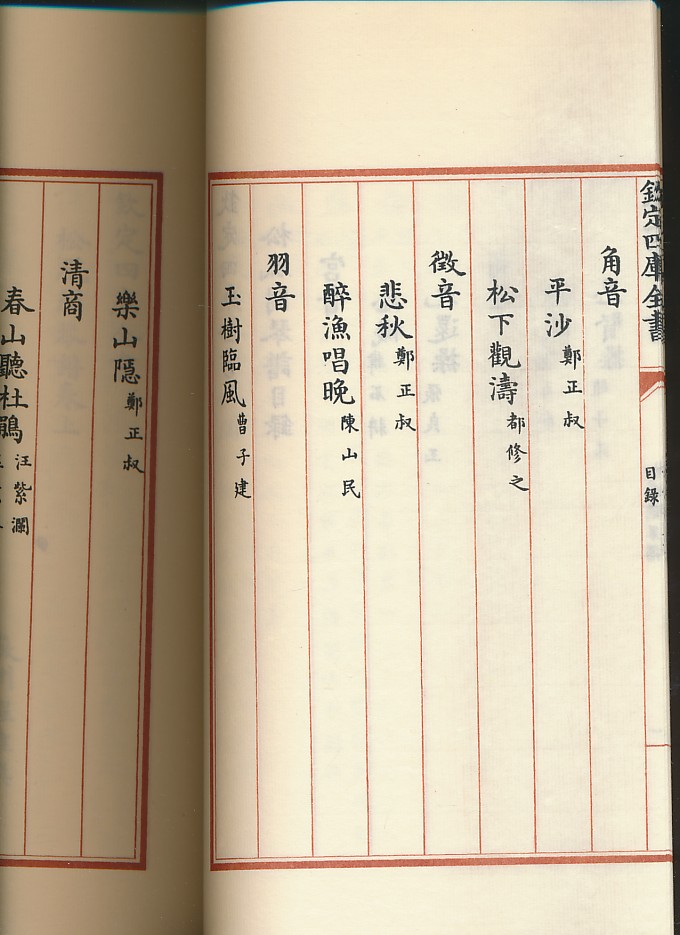 欽定四庫全書
目錄
角音
平沙 鄭正叔
松下觀濤 都修之
徵音
悲秋 鄭正叔
醉漁唱晚 陳山民
羽音
玉樹臨風 曹子建
樂山隠 鄭正叔
清商
春山聽杜鵑 汪紫瀾